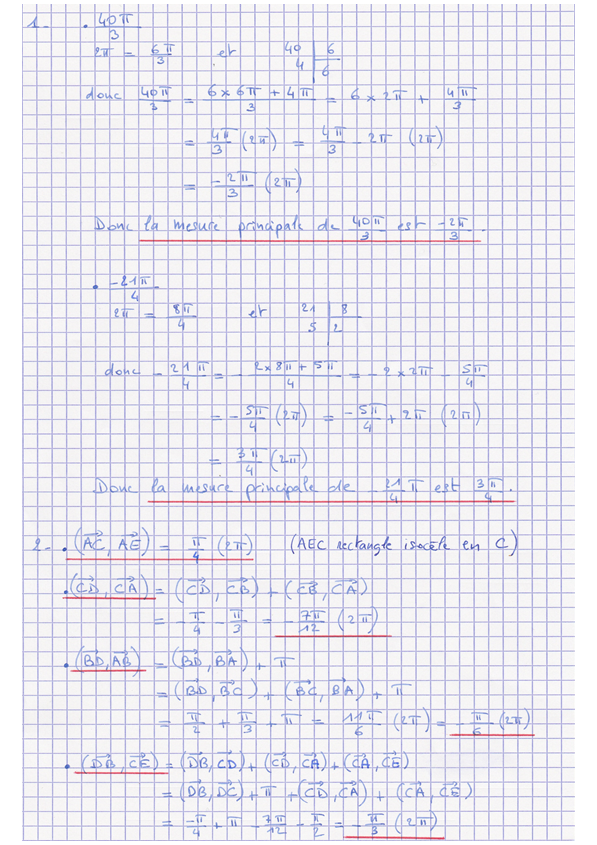 1- . 40π/3
2π = 6π/3 et 40 | 6
4 | 6
donc 40π/3 = (6×6π + 4π)/3 = 6 × 2π + 4π/3
= 4π/3 (2π) = 4π/3 - 2π (2π)
= -2π/3 (2π)
Donc la mesure principale de 40π/3 est -2π/3.
. -21π/4
2π = 8π/4 et 21 | 8
5 | 2
donc -21π/4 = -(2×8π + 5π)/4 = -2 × 2π - 5π/4
= -5π/4 (2π) = -5π/4 + 2π (2π)
= 3π/4 (2π)
Donc la mesure principale de -21/4 π est 3π/4.
2- . (AC→, AE→) = π/4 (2π) (AEC rectangle isocèle en C)
. (CD→, CA→) = (CD→, CB→) + (CB→, CA→)
= -π/4 - π/3 = -7π/12 (2π)
. (BD→, AB→) = (BD→, BA→) + π
= (BD→, BC→) + (BC→, BA→) + π
= π/2 + π/3 + π = 11π/6 (2π) = -π/6 (2π)
. (DB→, CE→) = (DB→, CD→) + (CD→, CA→) + (CA→, CE→)
= (DB→, DC→) + π + (CD→, CA→) + (CA→, CE→)
= -π/4 + π - 7π/12 - π/2 = -π/3 (2π)